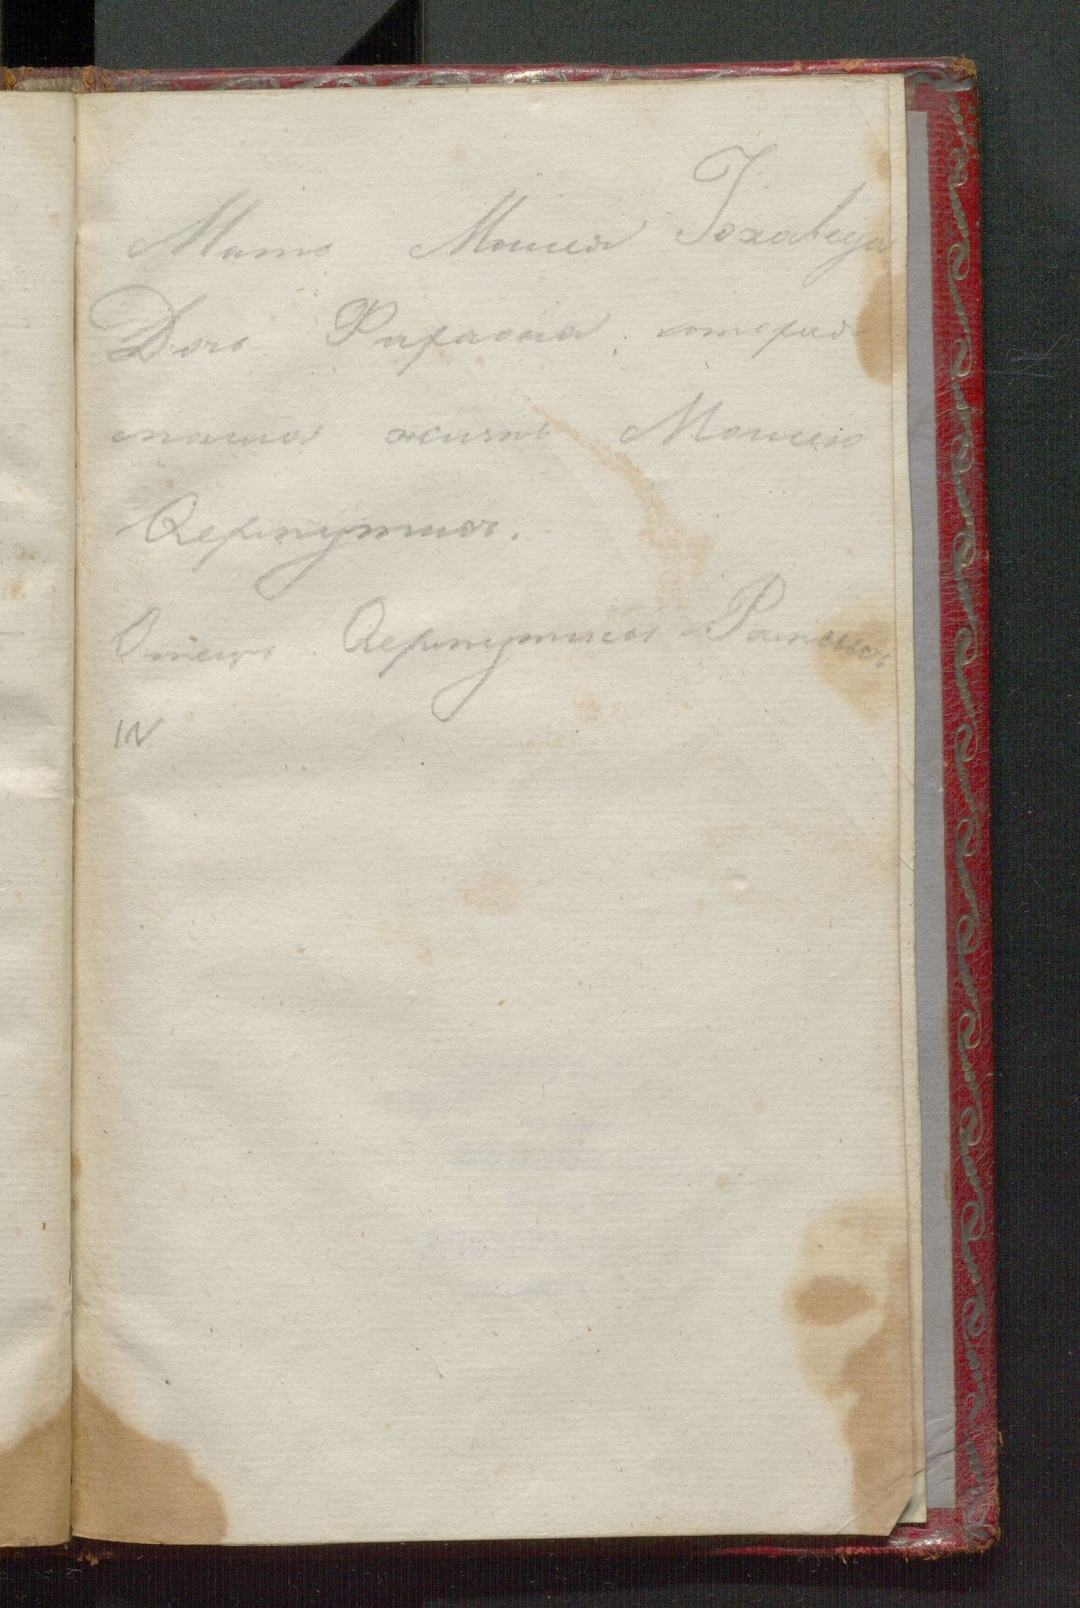 Мать Моисея Іохаведа
Дочь Фараона, которая
спасла жизнь Моисею
Ѳермутисъ.
Отецъ Ѳермутисы Рамзесъ
IV